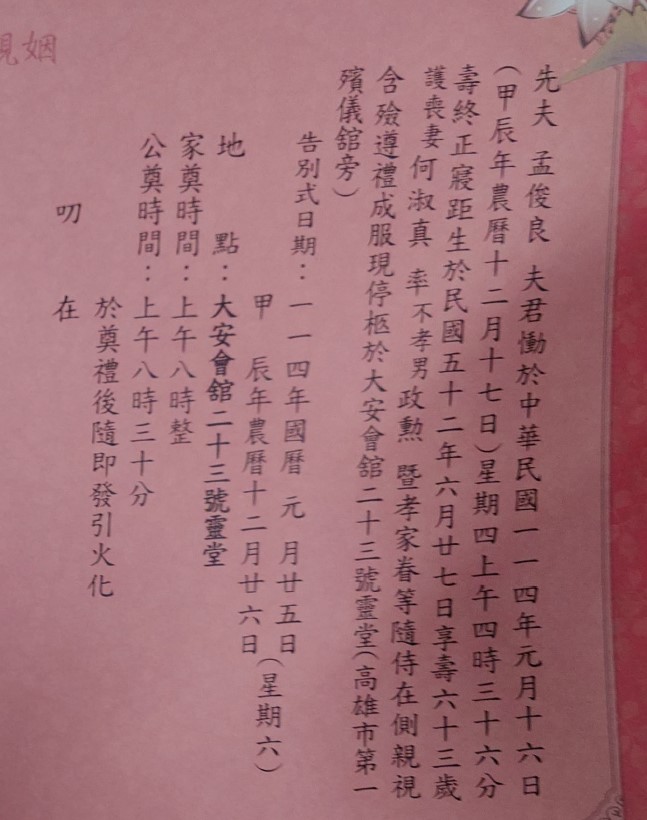 先夫 孟俊良 夫君慟於中華民國一一四年元月十六日
(甲辰年農曆十二月十七日)星期四上午四時三十六分
壽終正寢距生於民國五十二年六月廿七日享壽六十三歲
護喪妻何淑真 率不孝男政勲 暨孝家眷等隨侍在側親視
含殮遵禮成服現停柩於大安會舘二十三號靈堂(高雄市第一
殯儀舘旁)
告別式日期：一一四年國曆 元 月廿五日
甲 辰年農曆十二月廿六日
(星期六)
地 點：大安會舘二十三號靈堂
家奠時間：上午八時整
公奠時間：上午八時三十分
於奠禮後隨即發引火化
叨 在
姻